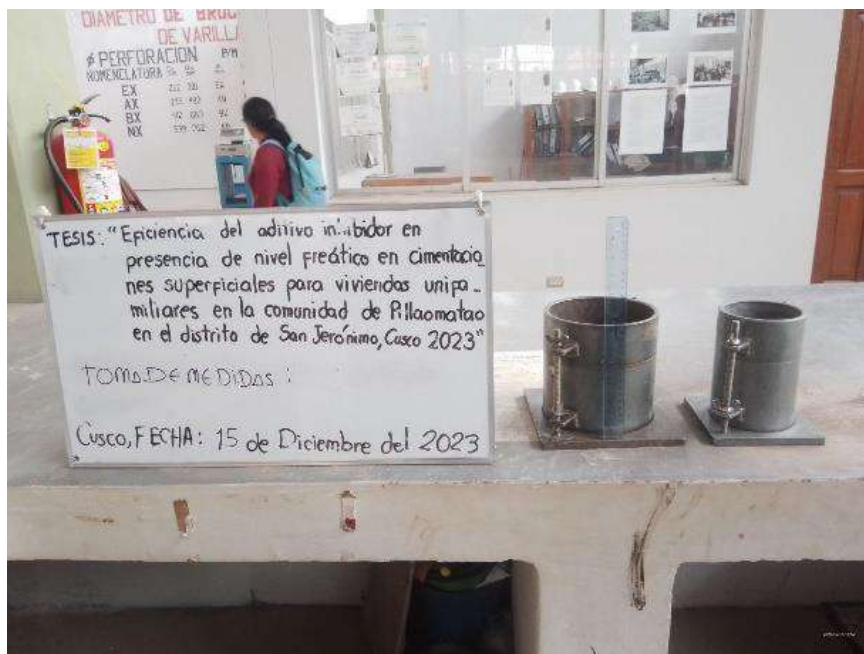 DIAMETRO DE BROC
DE VARILL
φ PERFORACION
NOMENCLATURA
EX
AX
BX
NX
TESIS: "Eficiencia del aditivo inhibidor en
presencia de nivel freático en cimentacio_
nes superficiales para viviendas unifa_
miliares en la comunidad de Pillaomatao
en el distrito de San Jerónimo, Cusco 2023"
TOMA DE MEDIDAS :
Cusco, FECHA: 15 de Diciembre del 2023